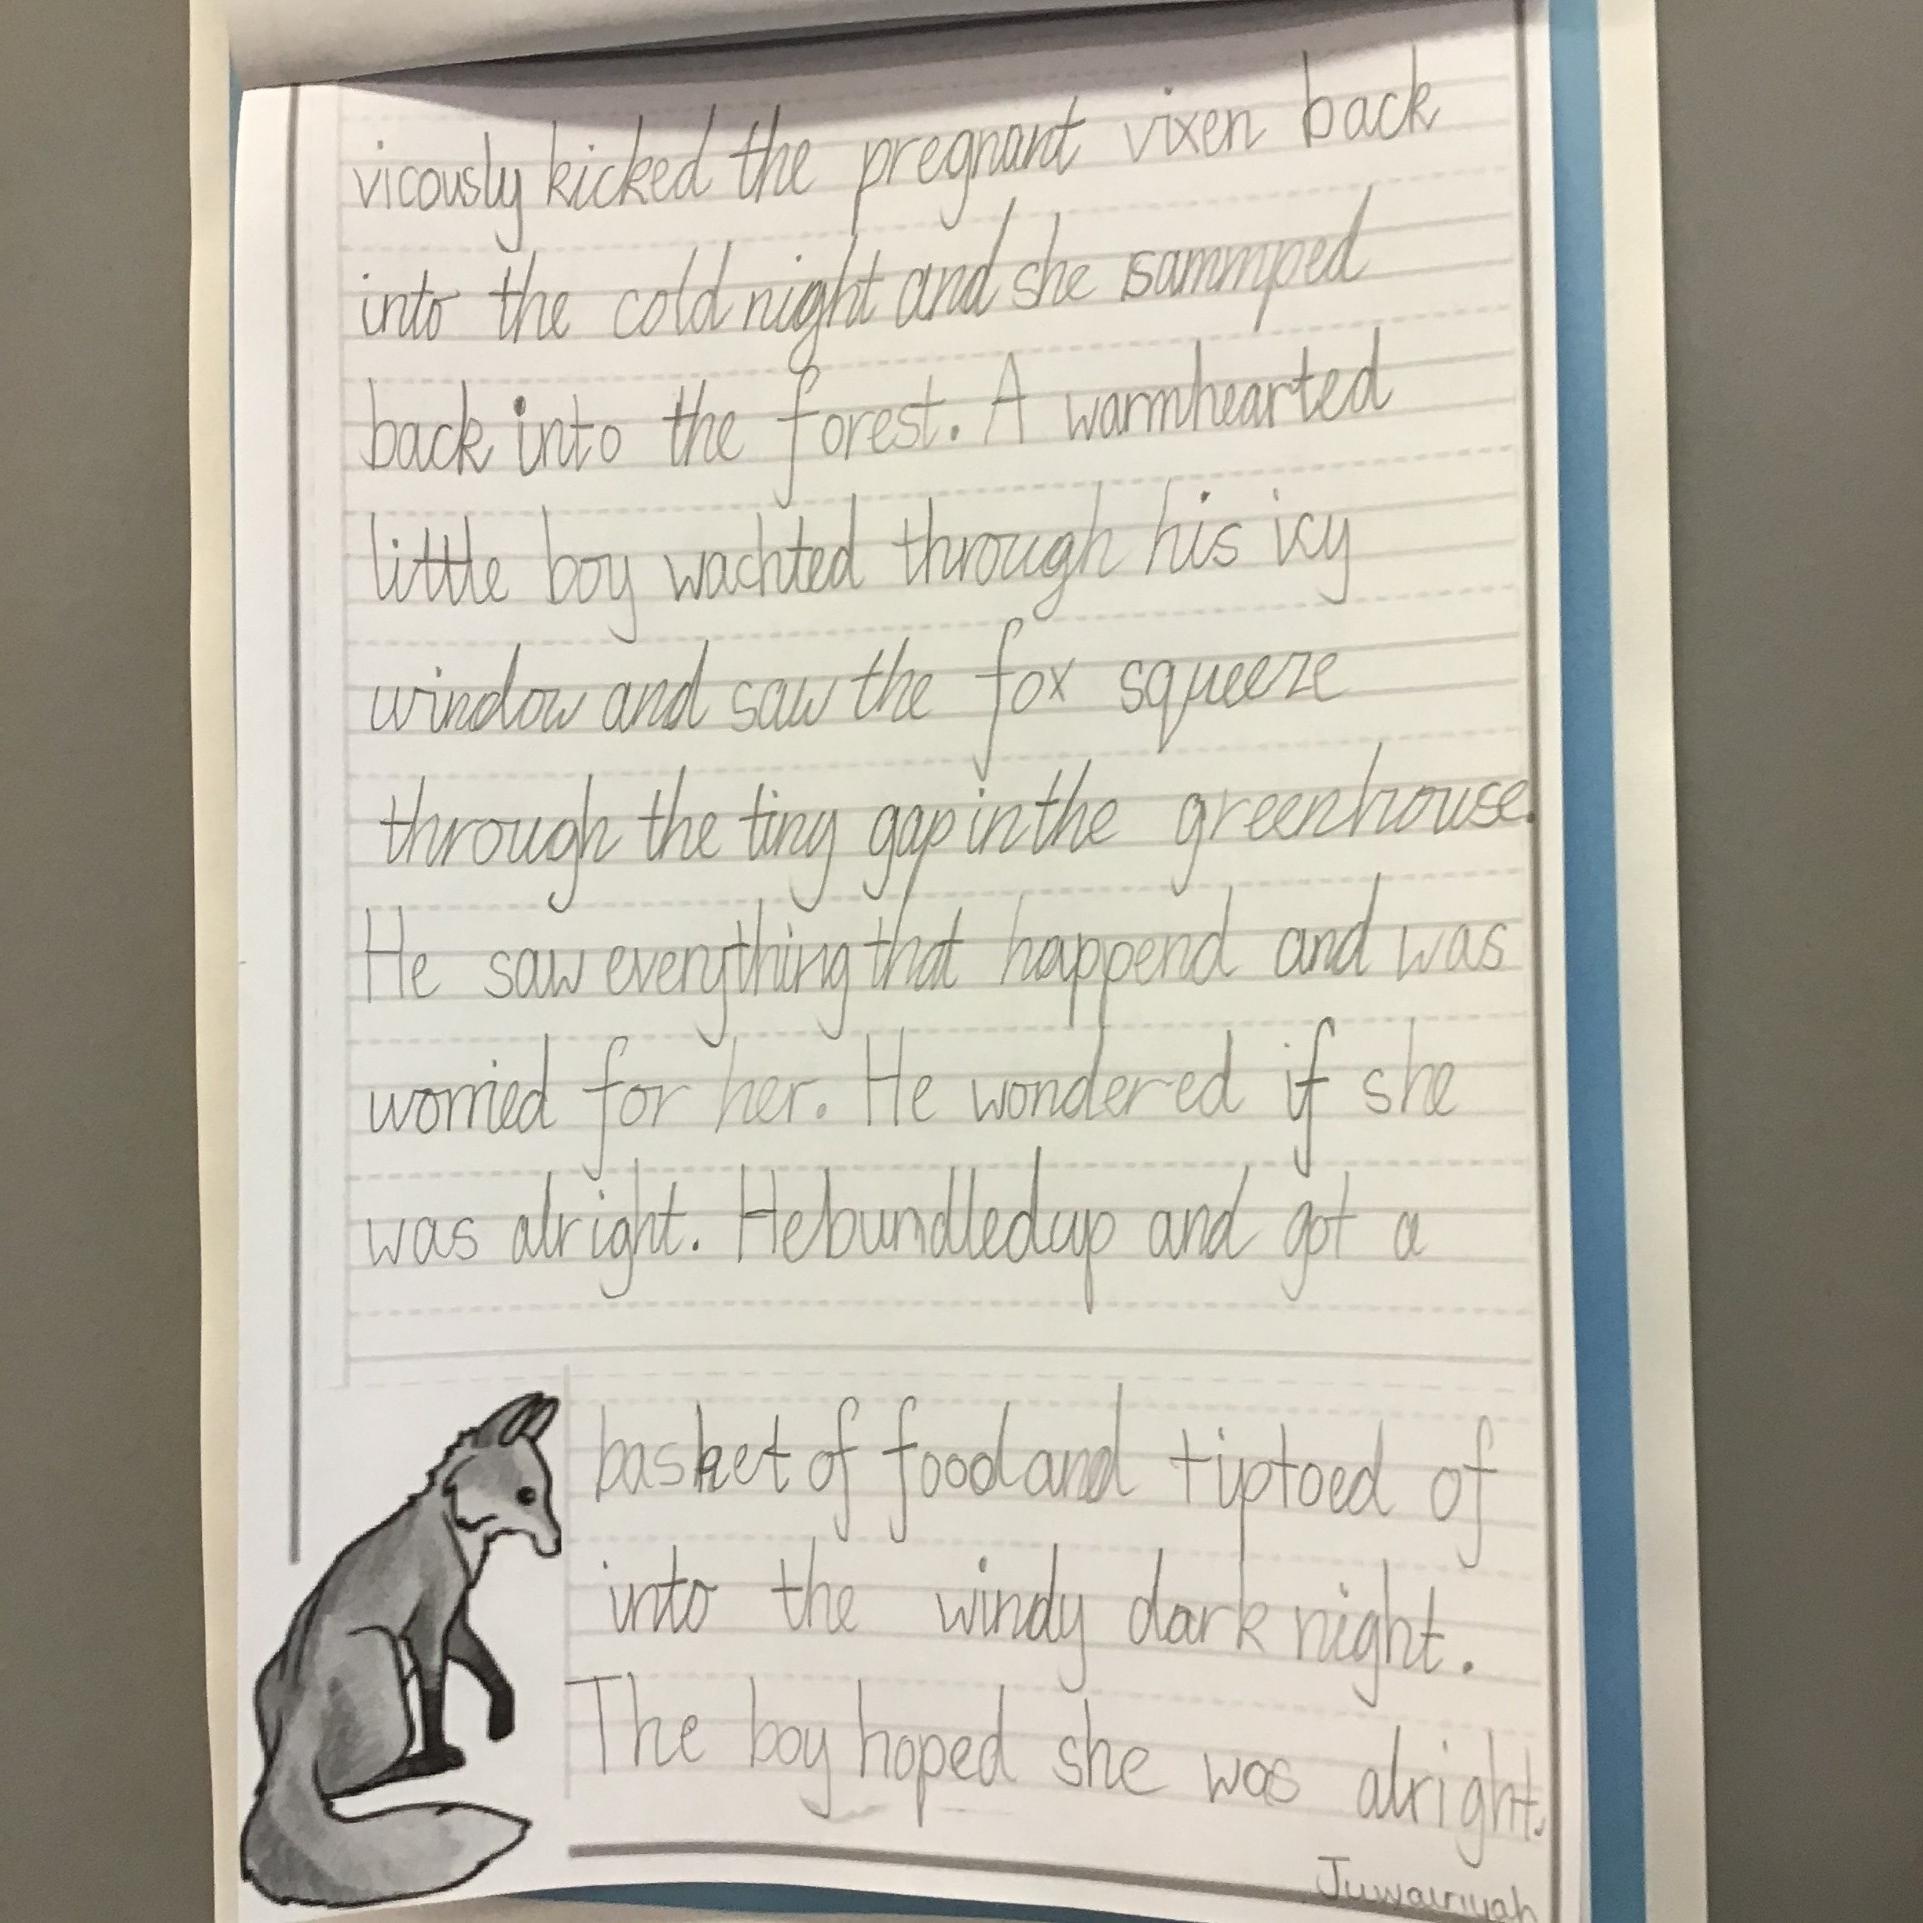 vicously kicked the pregnant vixen back
into the cold night and she sammped
back into the forest. A warmhearted
little boy wachted through his icy
window and saw the fox squeeze
through the tiny gap in the greenhouse.
He saw everything that happend and was
worried for her. He wondered if she
was alright. He bundled up and got a
basket of food and tiptoed of
into the windy dark night.
The boy hoped she was alright.
Juwairiyah